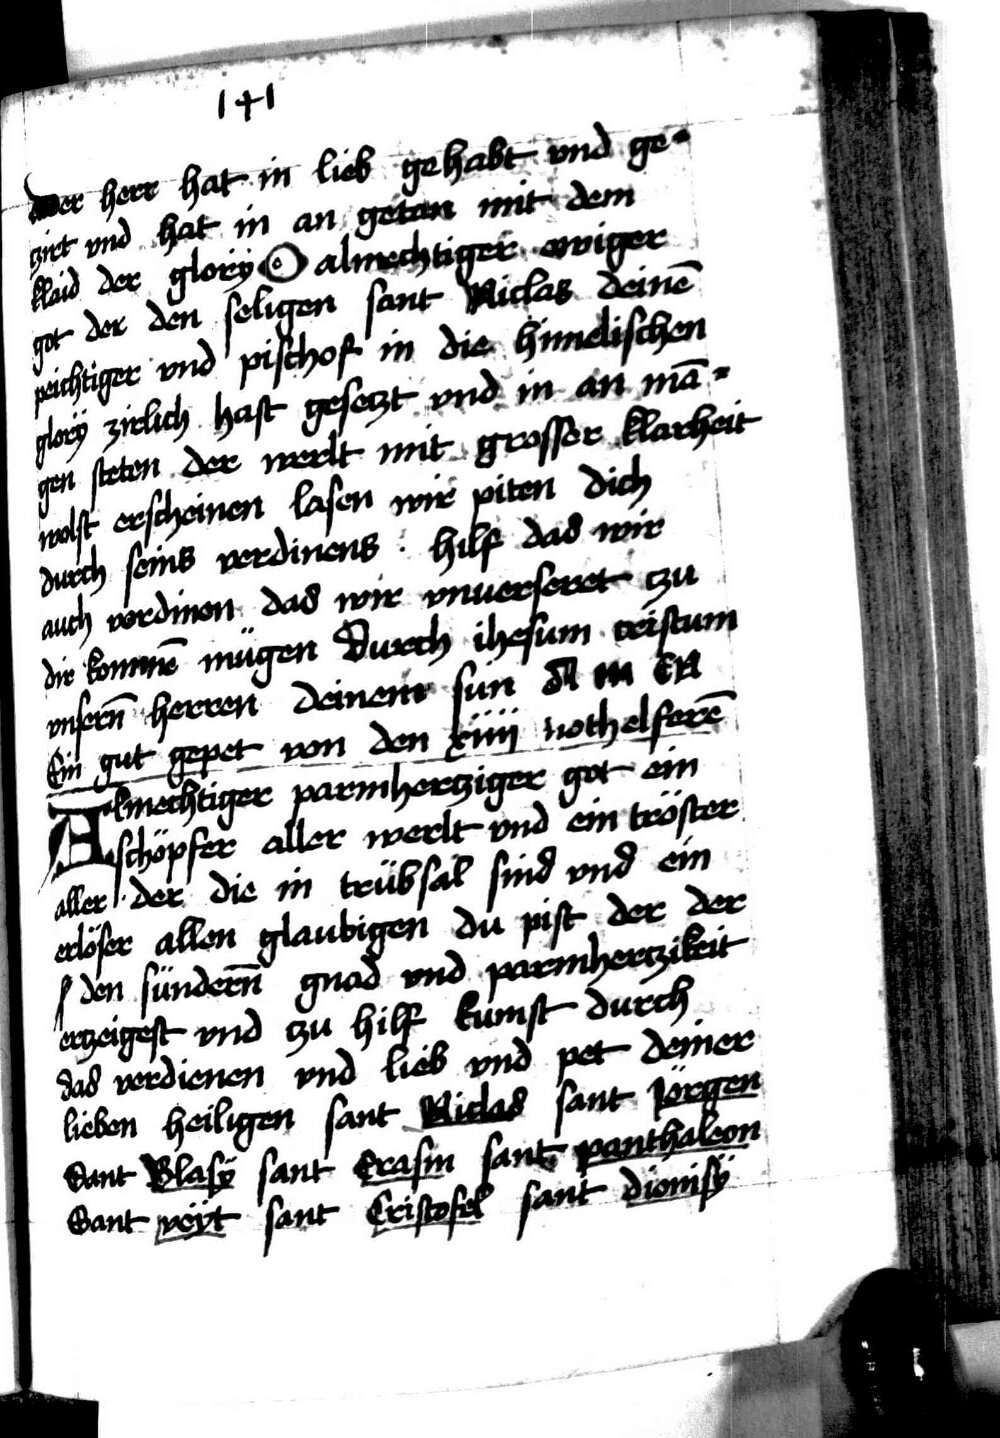 141
der herr hat in lieb gehabt vnd ge-
tzirt vnd hat in an getan mit dem
klaid der glorÿ O almechtiger ewiger
got der den seligen sant Niclas deinē
peichtiger vnd pischof in die himelischen
glorÿ zirlich hast gesetzt vnd in an mā-
gen steten der werlt mit grosser klarheit
wolst erscheinen lasen wir piten dich
durch seins verdinens · hilf das wir
auch verdinen das wir vnuerseret tzu
dir kommē mügen Durch ihesum cristum
vnsern̄ herren deinem sun A m EN
Ein gut gepet von den xiiii nothelferē
Almechtiger parmhertziger got ein
schöpfer aller werlt vnd ein tröster
aller der die in trübsal sind vnd ein
erlöser allen glaubigen du pist der der
den sündern̄ gnad vnd parmhertzikeit
ertzeigest vnd tzu hilf kumst durch
das verdienen vnd lieb vnd pet deiner
lieben heiligen sant Niclas sant Jörgen
Sant Blasÿ sant Erasm sant panthaleon
Sant veÿt sant Cristofel sant dionisÿ